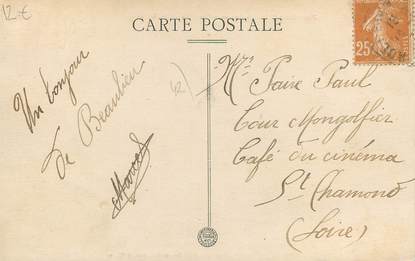 12 €
CARTE POSTALE
25
Un bonjour
de Beaulieu
Mr Faire Paul
Cour Mongolfier
Café du cinéma
St Chamond
(Loire)